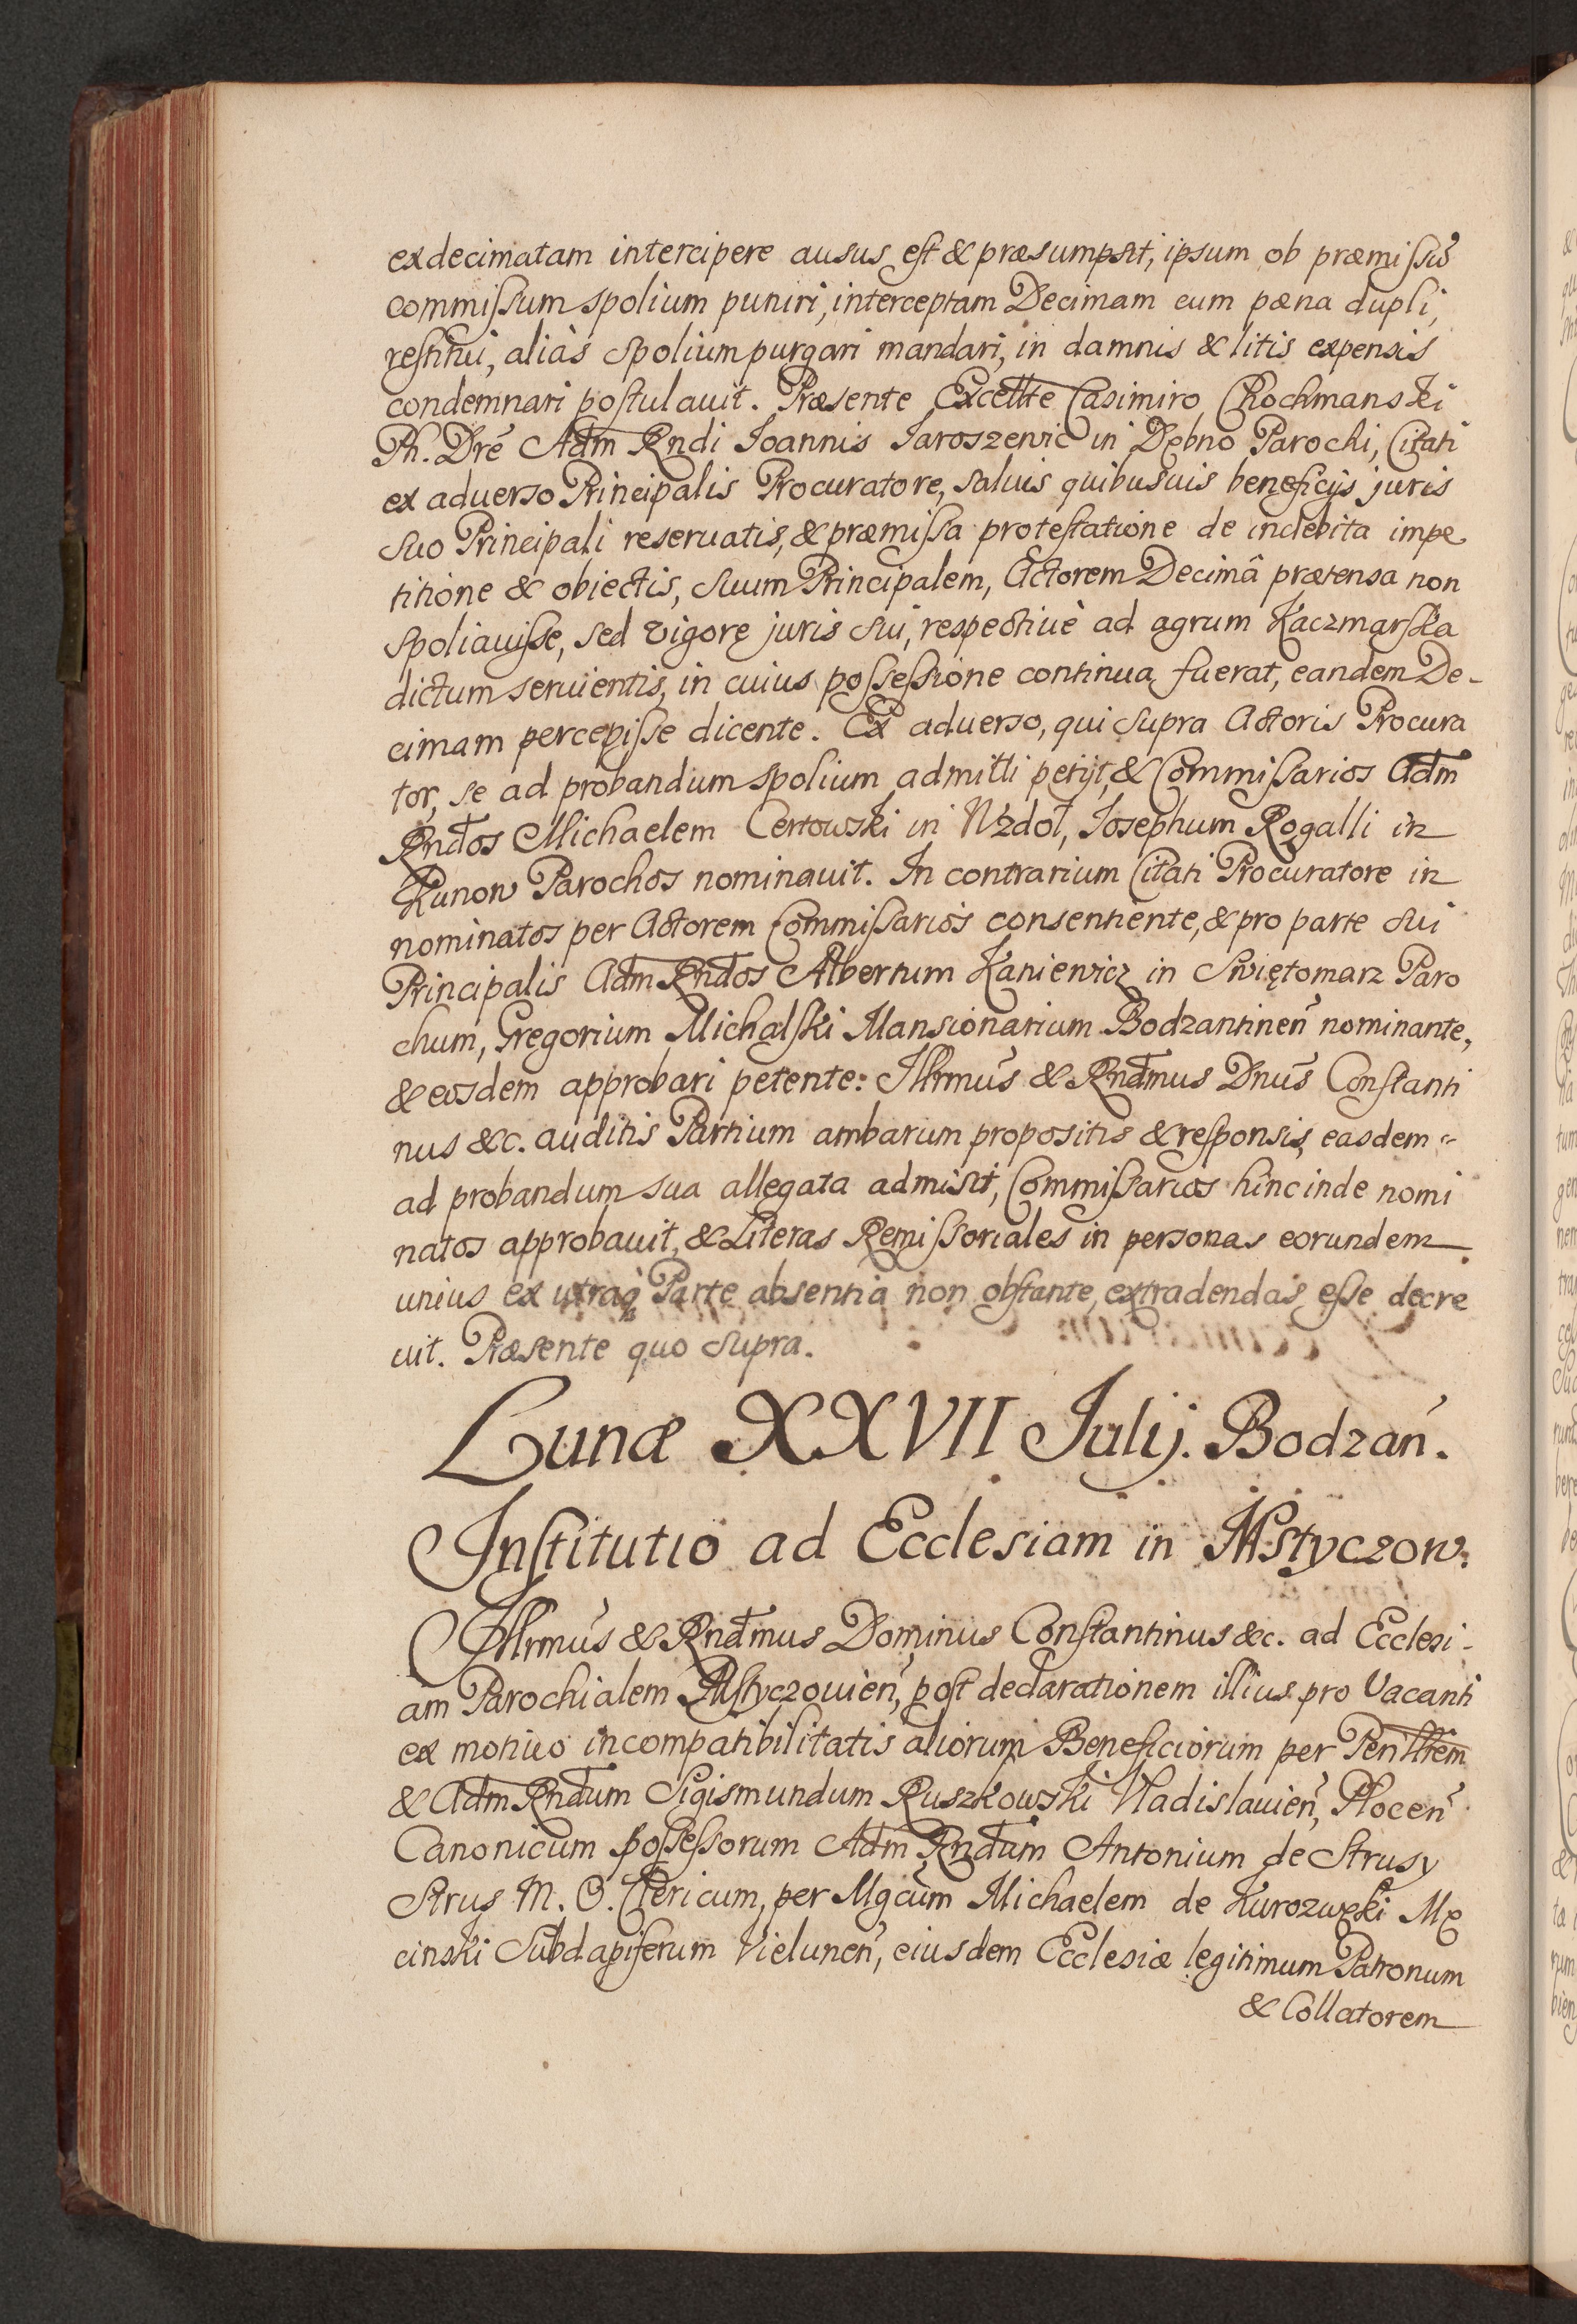 exdecimatam intercipere ausus est & præsumpsit, ipsum ob præmissũ
commissum spolium puniri, interceptam Decimam cum pæna dupli,
restitui, aliàs spolium purgari mandari, in damnis & litis expensis
condemnari postulauit. Præsente Excellte Casimiro Chochmanski
Ph. Dre Adm Rndi Ioannis Iaroszewic in Dębno Parochi, Citati
ex aduerso Principalis Procuratore, saluis quibusuis beneficijs juris
suo Principali reseruatis, & præmissa protestatione de indebita impe
titione & obiectis, suum Principalem, Actorem Decimâ prætensa non
spoliauisse, sed vigore juris sui, respectiuè ad agrum Kaczmarska
dictum seruientis, in cuius possessione continua fuerat, eandem De-
cimam percepisse dicente. Ex aduerso, qui supra Actoris Procura
tor, se ad probandum spolium admitti petijt, & Commissarios Adm
Rndos Michaelem Certowski in Wzdoł, Iosephum Rogalli in
Kunow Parochos nominauit. In contrarium Citati Procuratore in
nominatos per Actorem Commissarios consentiente, & pro parte sui
Principalis Adm Rndos Albertum Kaniewicz in Swiętomarz Paro
chum, Gregorium Michalski Mansionarium Bodzantinen nominante,
& eosdem approbari petente: Illrmus & Rndmus Dnus Constanti
nus &c. auditis Partium ambarum propositis & responsis, easdem
ad probandum sua allegata admisit, Commissarios hinc inde nomi
natos approbauit, & Literas Remissoriales in personas eorundem
unius ex utraq Parte absentia non obstante, extradendas esse decre
uit. Præsente quo supra.
Lunæ XXVII Julij. Bodzan.
Institutio ad Ecclesiam in Mstyczow.
Illrmus & Rndmus Dominus Constantinus &c. ad Ecclesi-
am Parochialem Mstyczouien, post declarationem illius pro Vacanti
ex motiuo incompatibilitatis aliorum Beneficiorum per Perilltem
& Adm Rndum Sigismundum Ruszkowski Vladislauien, Plocen
Canonicum possessorum Adm Rndum Antonium de Strusy
Strus M. O. Clericum, per Mgcum Michaelem de Kurozwęki Mę
cinski Subdapiferum Vielunen, eiusdem Ecclesiæ legitimum Patronum
& Collatorem